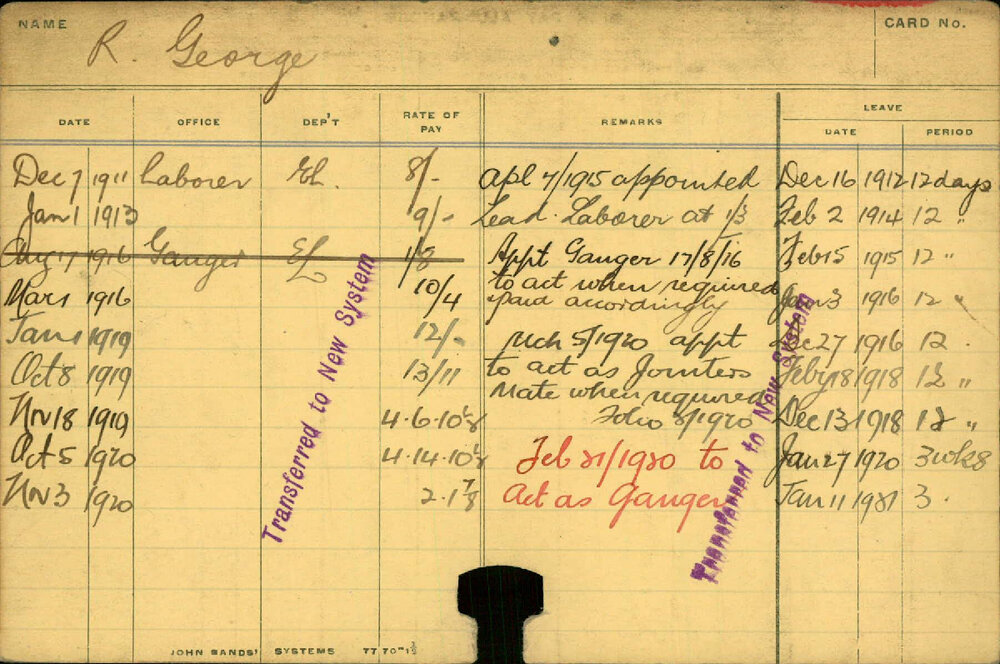 NAME
CARD No.
R. George
DATE OFFICE DEP'T RATE OF PAY REMARKS LEAVE
DATE PERIOD
Dec 7 1911 Laborer El. 8/- Apl 7/1915 appointed Dec 16 1912 12 days
Jan 1 1913 9/- Lead. Laborer at 1/3 Feb 2 1914 12 "
Aug 17 1916 Ganger EL 1/8 Appt Ganger 17/8/16 Feb 15 1915 12 "
to act when required
Mar 1 1916 10/4 paid accordingly Jan 3 1916 12 "
Jan 1 1919 12/- Mch 5/1920 appt Dec 27 1916 12 .
Oct 8 1919 13/11 to act as Jointers Feby 18 1918 12 "
Mate when required
Nov 18 1919 4.6.10 Folio 3/1920 Dec 13 1918 12 "
Oct 5 1920 4.14.10 Feb 21/1920 to Jan 27 1920 3 wks
Nov 3 1920 2.1 7/8 Act as Ganger Jan 11 1921 3 .
Transferred to New System
Transferred to New System
JOHN SANDS' SYSTEMS 77 70